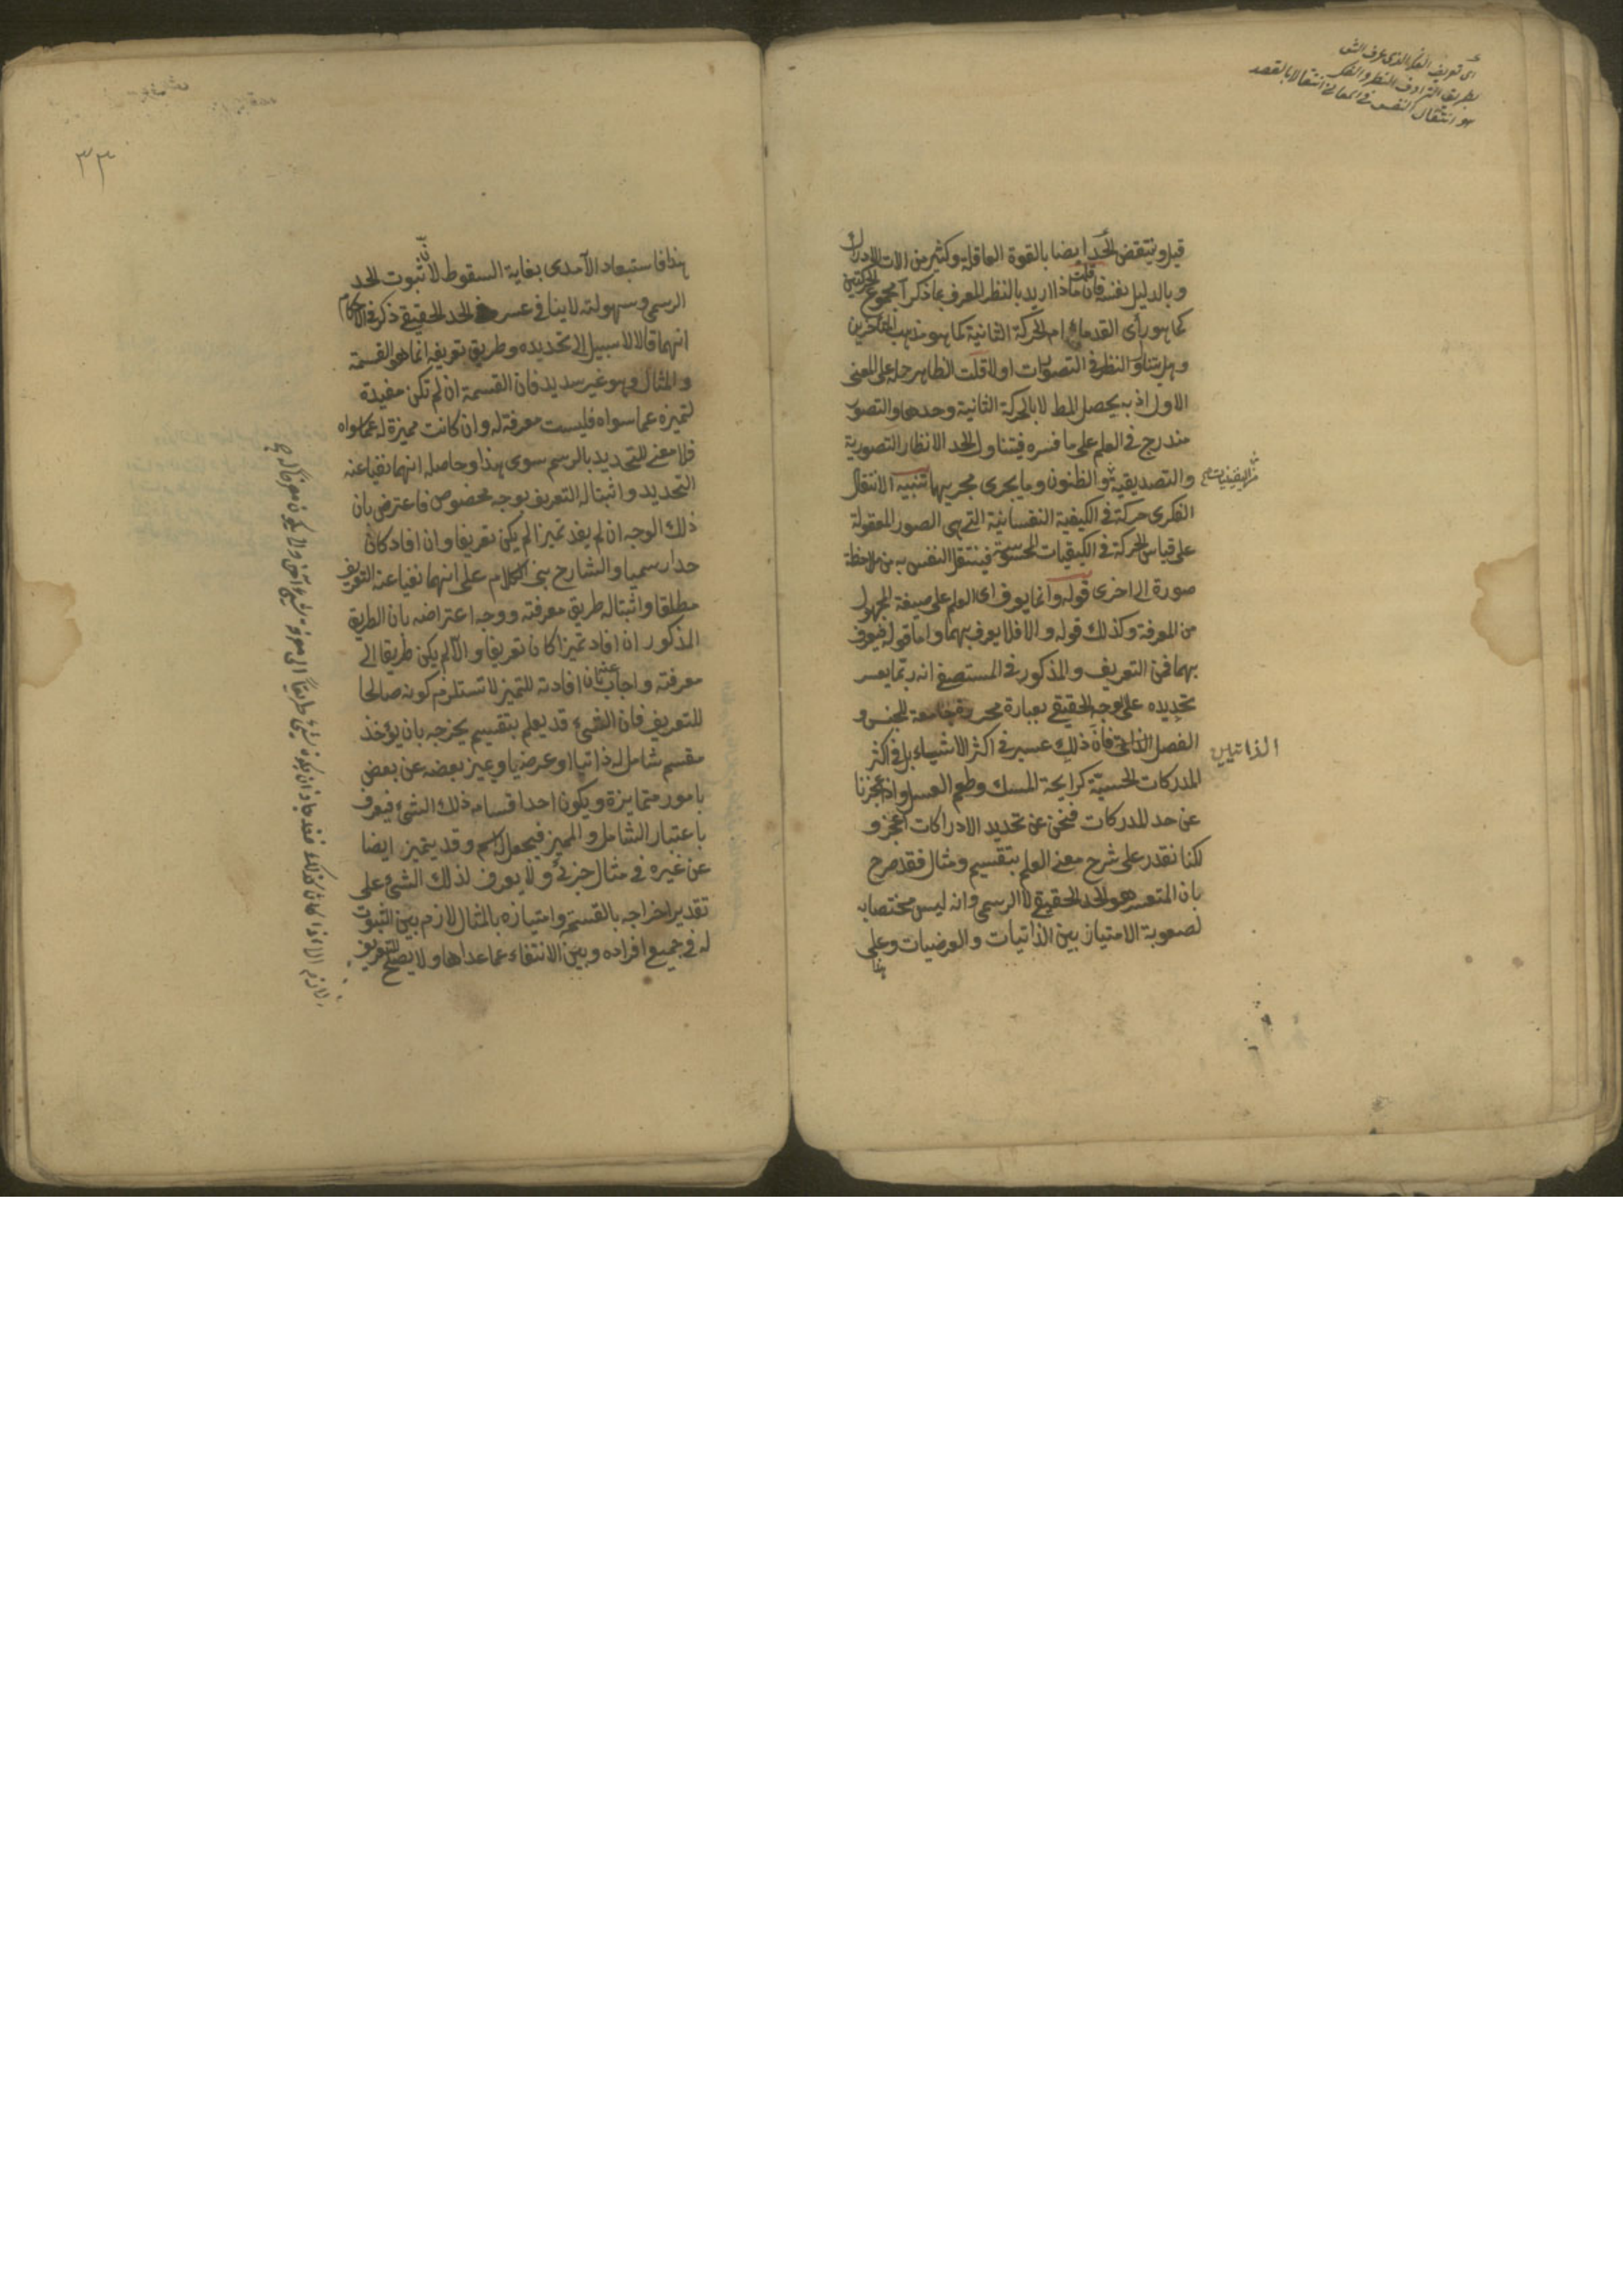 اى تعريف الفكر الذى عرف الش
بطريق الترادف النظر والفكر
هو انتقال النفس في المعاني انتقالا بالقصد
قيل وينتقض الحد ايضا بالقوة العاقلة وكثير من الات الادراك
وبالدليل نفسه فان قلت ماذا اريد بالنظر المعرف بما ذكر أمجموع الحركتين
كما هو رأى القدماء ام الحركة الثانية كما هو مذهب المتأخرين
وهل يتناول النظر في التصورات اولا قلت الظاهر حمله على المعنى
الاول اذ به يحصل المط لا بالحركة الثانية وحدها والتصور
مندرج في العلم على ما فسره فيتناول الحد الانظار التصورية
والتصديقية والظنون وما يجرى مجريها تنبيه الانتقال
من اليقينيات
الفكرى حركة في الكيفية النفسانية التي هى الصور المعقولة
على قياس الحركة في الكيفيات المحسوسة فينتقل النفس به من ملاحظة
صورة الى اخرى قوله وانما يعرف اى العلم على صيغة المجهول
من المعرفة وكذلك قوله والا فلا يعرف بهما واما قوله فيعرف
بهما فمن التعريف والمذكور في المستصفى انه ربما يعسر
تحديده على الوجه الحقيقي بعبارة محررة جامعة للجنس و
الفصل الذاتي فان ذلك عسير في اكثر الاشياء بل في اكثر
الذاتيين
المدركات الحسية كرايحة المسك وطعم العسل واذا عجزنا
عن حد المدركات فنحن عن تحديد الادراكات اعجز و
لكنا نقدر على شرح معنى العلم بتقسيم ومثال فقد صرح
بان المتعسر هو الحد الحقيقي لا الرسمي وانه ليس مختصا به
لصعوبة الامتياز بين الذاتيات والعرضيات وعلى
هذا
٣٣
هذا فاستبعاد الآمدى بغاية السقوط لان ثبوت الحد
الرسمي وسهولته لا ينافي عسر الحد الحقيقي ذكر في الاحكام
انهما قالا لا سبيل الى تحديده وطريق تعريفه انما هو القسمة
والمثال وهو غير سديد فان القسمة ان لم تكن مفيدة
لتميزه عما سواه فليست معرفة له وان كانت مميزة له عما سواه
فلا معنى للتحديد بالرسم سوى هذا وحاصله انهما نفيا عنه
التحديد واثبتا له التعريف بوجه مخصوص فاعترض بان
ذلك الوجه ان لم يفد تميزا لم يكن تعريفا وان افاد كان
حدا رسميا والشارح بنى الكلام على انهما نفيا عنه التعريف
مطلقا واثبتا له طريق معرفته ووجه اعتراضه بان الطريق
المذكور ان افاد تميزا كان تعريفا والا لم يكن طريقا الى
معرفته واجاب عنه بان افادته للتميز لا تستلزم كونه صالحا
للتعريف فان الشئ قد يعلم بتقسيم يخرجه بان يؤخذ
مقسم شامل له ذاتيا او عرضيا ويميز بعضه عن بعض
بامور متمايزة ويكون احد اقسامه ذلك الشئ فيعرف
باعتبار الشامل والمميز فيجعل له اسم وقد يتميز ايضا
عن غيره في مثال جزئي ولا يعرف لذلك الشئ على
تقدير اخراجه بالقسمة وامتيازه بالمثال لازم بين الثبوت
له في جميع افراده وبين الانتفاء عما عداها ولا يصلح للتعريف